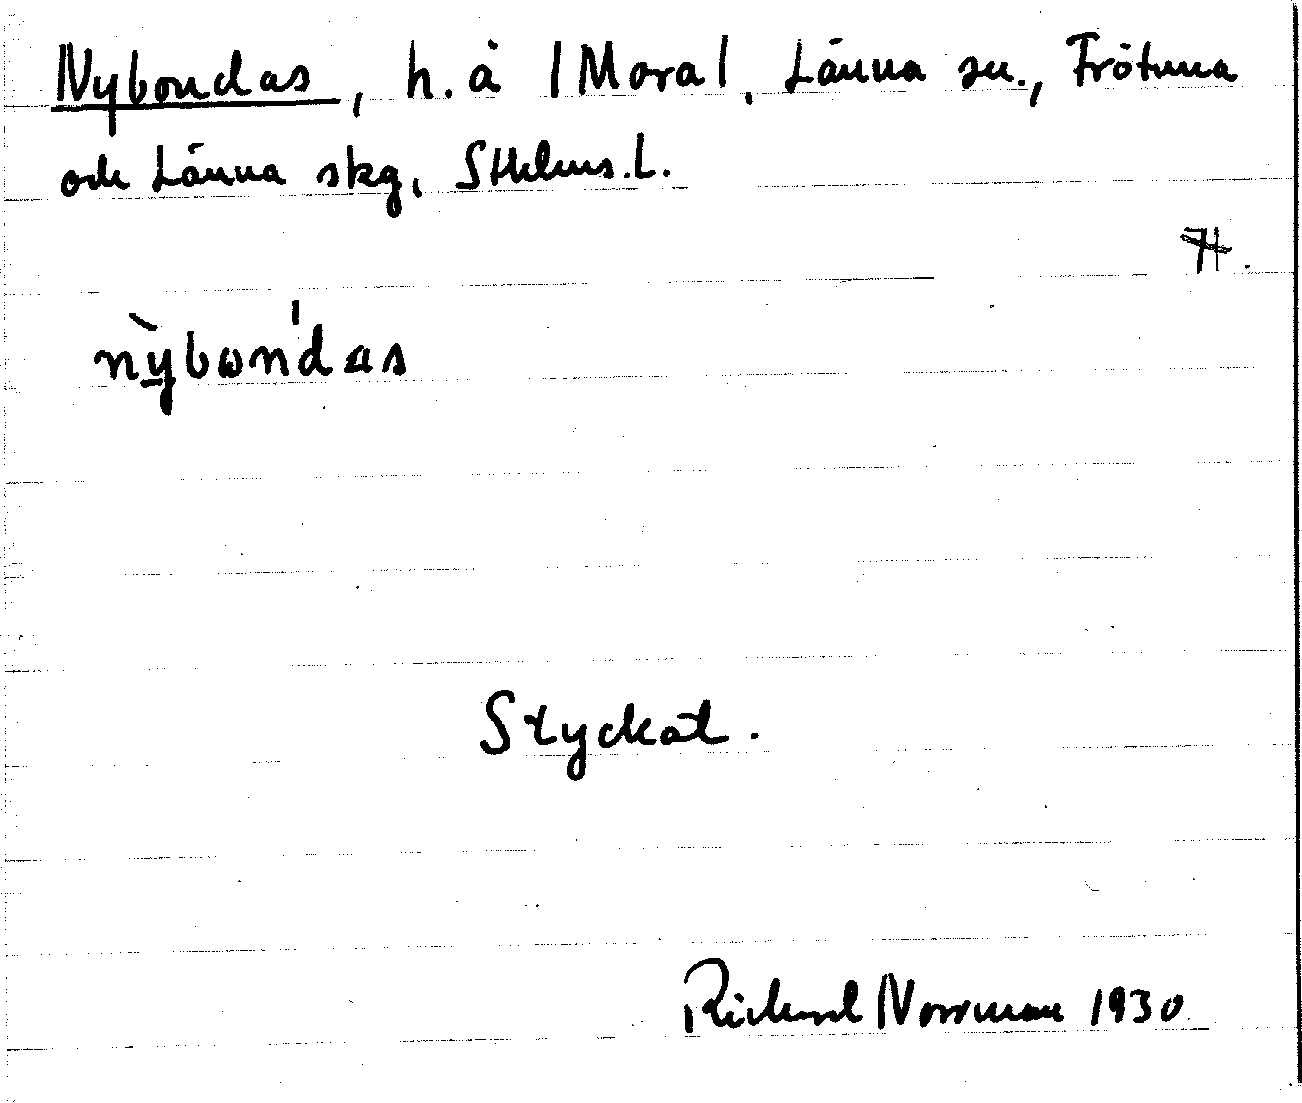 Nybondas, h. å |Mora|, Länna sn., Frötuna
och Länna skg, Sthlms. L.
nỳbωn'das
Styckat.
Richard Norrman 1930